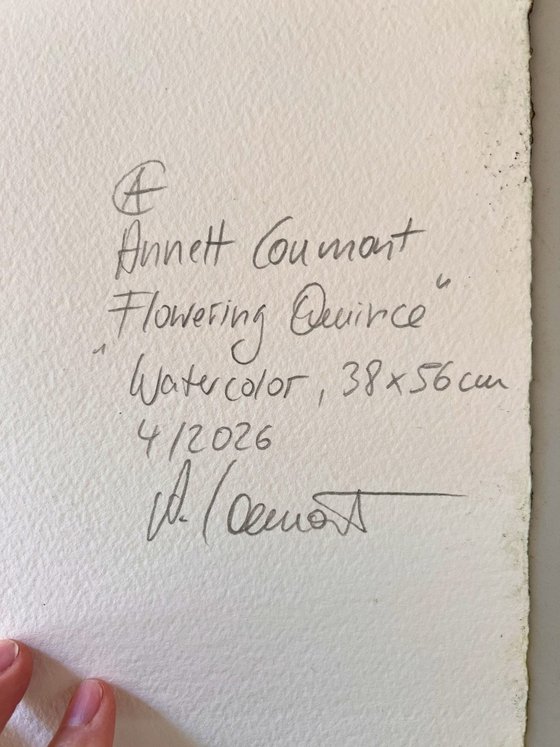 A
Annett Coumont
„Flowering Quince“
Watercolor, 38x56cm
4/2026
A. Coumont